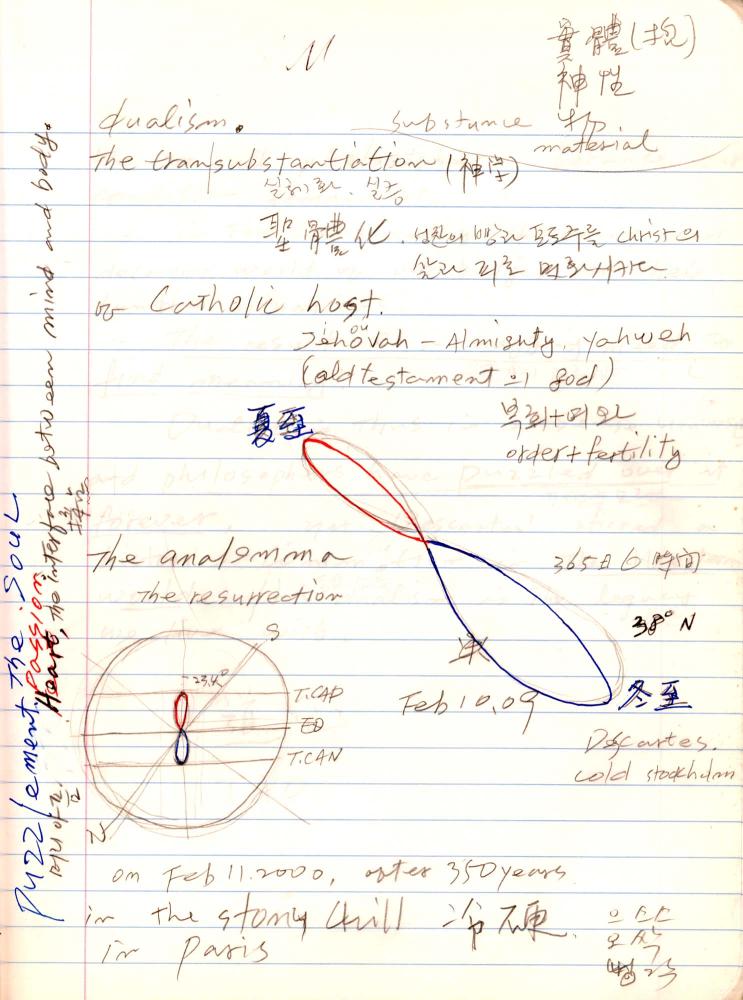 實體(抱)
神性
dualism.
substance 物
material
The transubstantiation (神学)
실체화. 실증
聖體化. 성찬의 빵과 포도주를 christ의
살과 피로 변화시키다
or Catholic host.
Jehovah - Almighty, Yahweh
ou
(old testament의 god)
order + fertility
夏至
The analemma
365日 6時間
The resurrection
38° N
S
-23.4°
T.CAP
EQ
T.CAN
N
Feb 10, 09
冬至
Descartes.
cold stockholm
on Feb 11. 2000, after 350 years
in the stony chill 冷硬.
in Paris
으스스
오싹
Puzzlement, The Soul
Passion
Heart, the interface between mind and body.